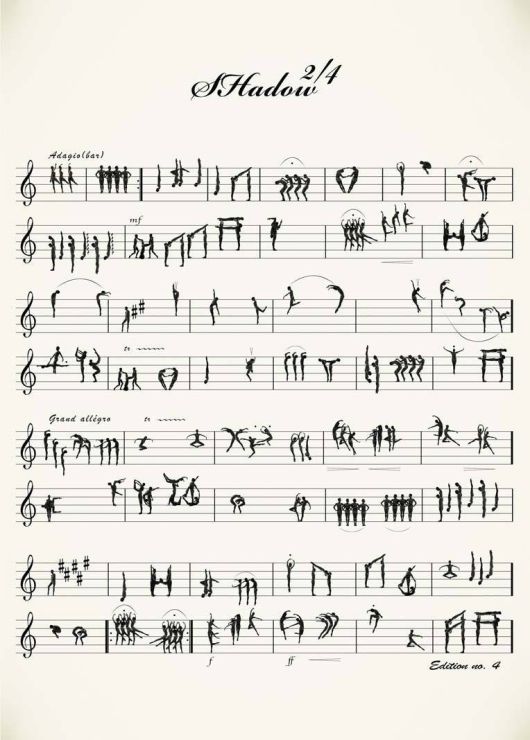 SHadow 2/4
Adagio(bar)
mf
tr
Grand allégro tr
f ff
Edition no. 4